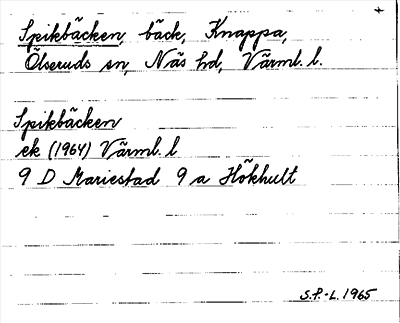 Spikbäcken, bäck, Knappa,
Ölseruds sn, Näs hd, Värml. l.
Spikbäcken
ek (1964) Värml. l
9 D Mariestad 9 a Hökhult
S.P.-L. 1965